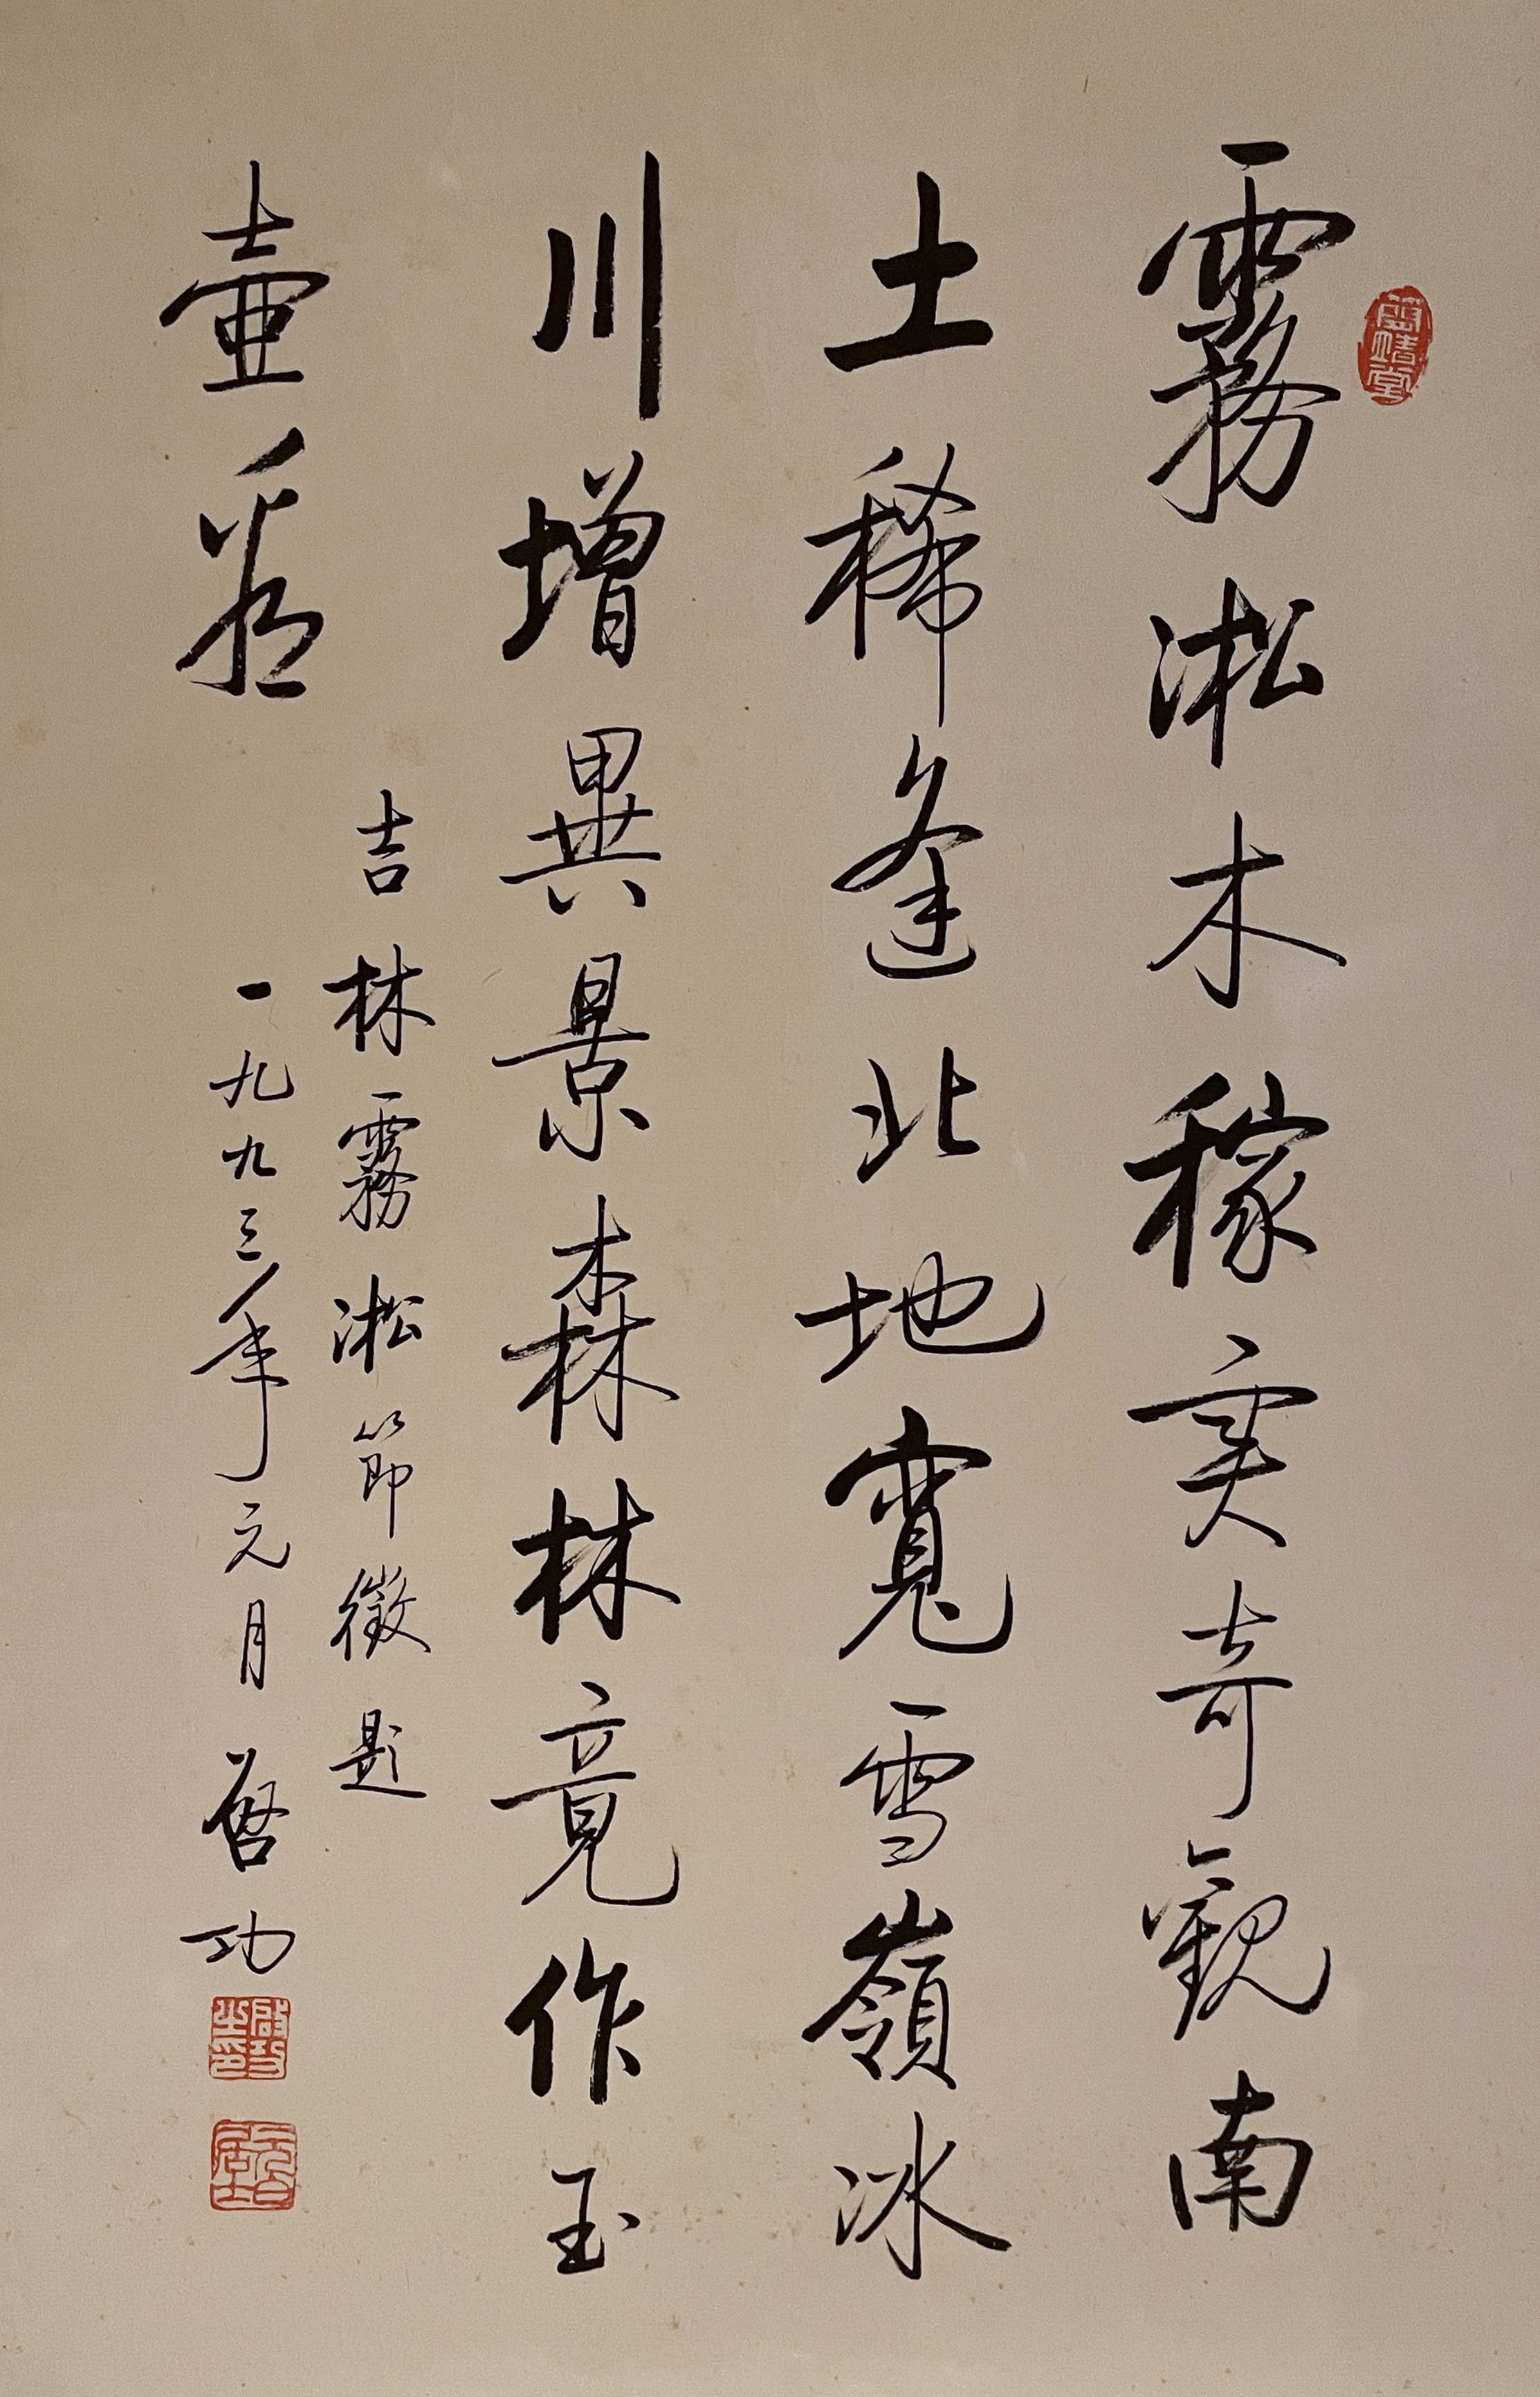 霧淞木稼實奇觀南
土稀逢北地寬雪嶺冰
川增異景森林竟作玉
壺看
吉林霧淞節徵題
一九九三年元月 啓功
啟功之印
元白